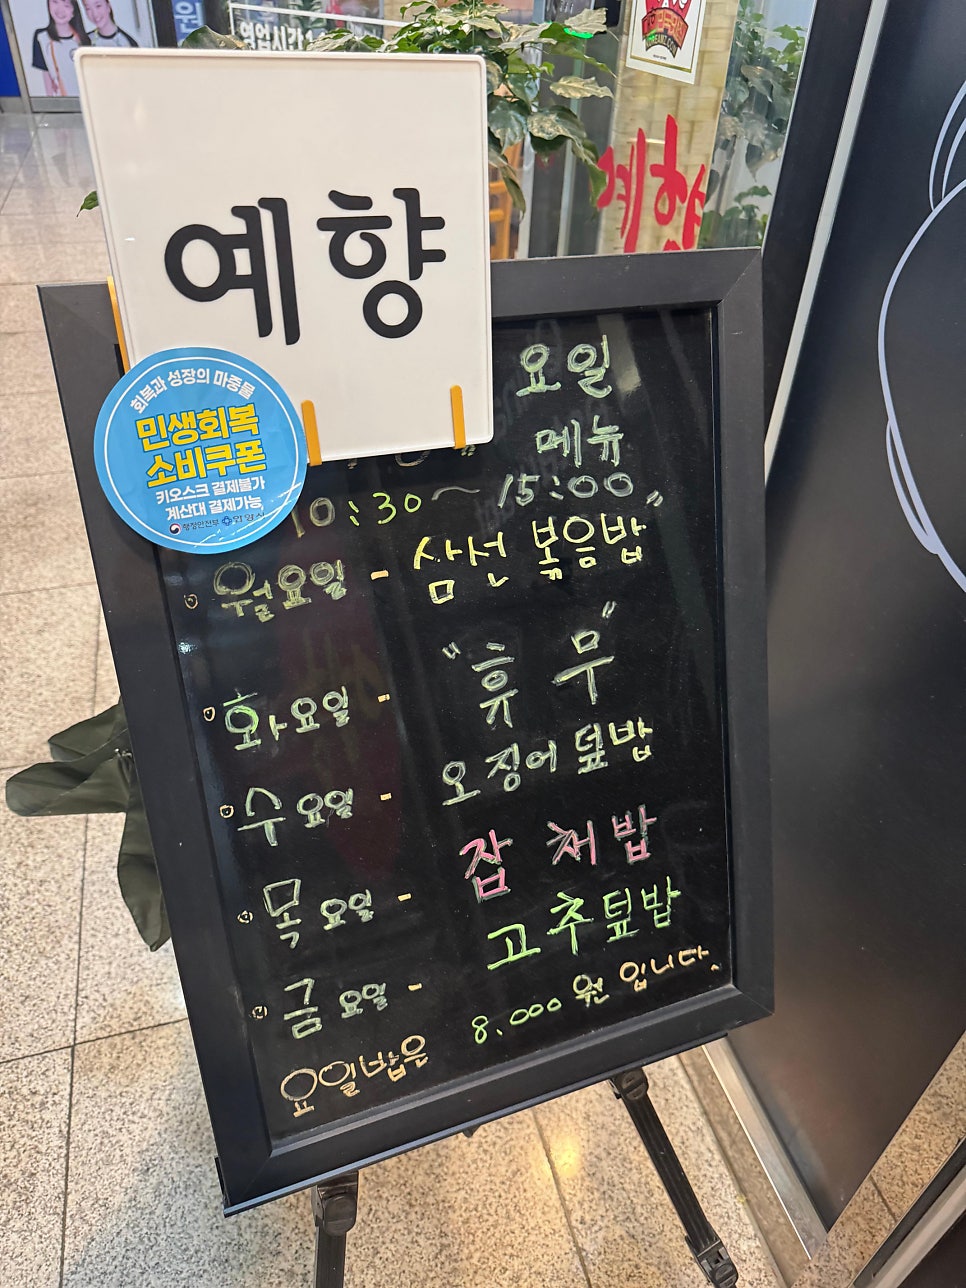 예향
회복과 성장의 마중물
민생회복
소비쿠폰
키오스크 결제불가
계산대 결제가능
행정안전부
요일
메뉴
10:30~15:00"
월요일 - 삼선 볶음밥
화요일 - "휴 무"
수요일 - 오징어 덮밥
목요일 - 잡채밥
금요일 - 고추덮밥
요일밥은 8.000원 입니다.
영업시간
예향